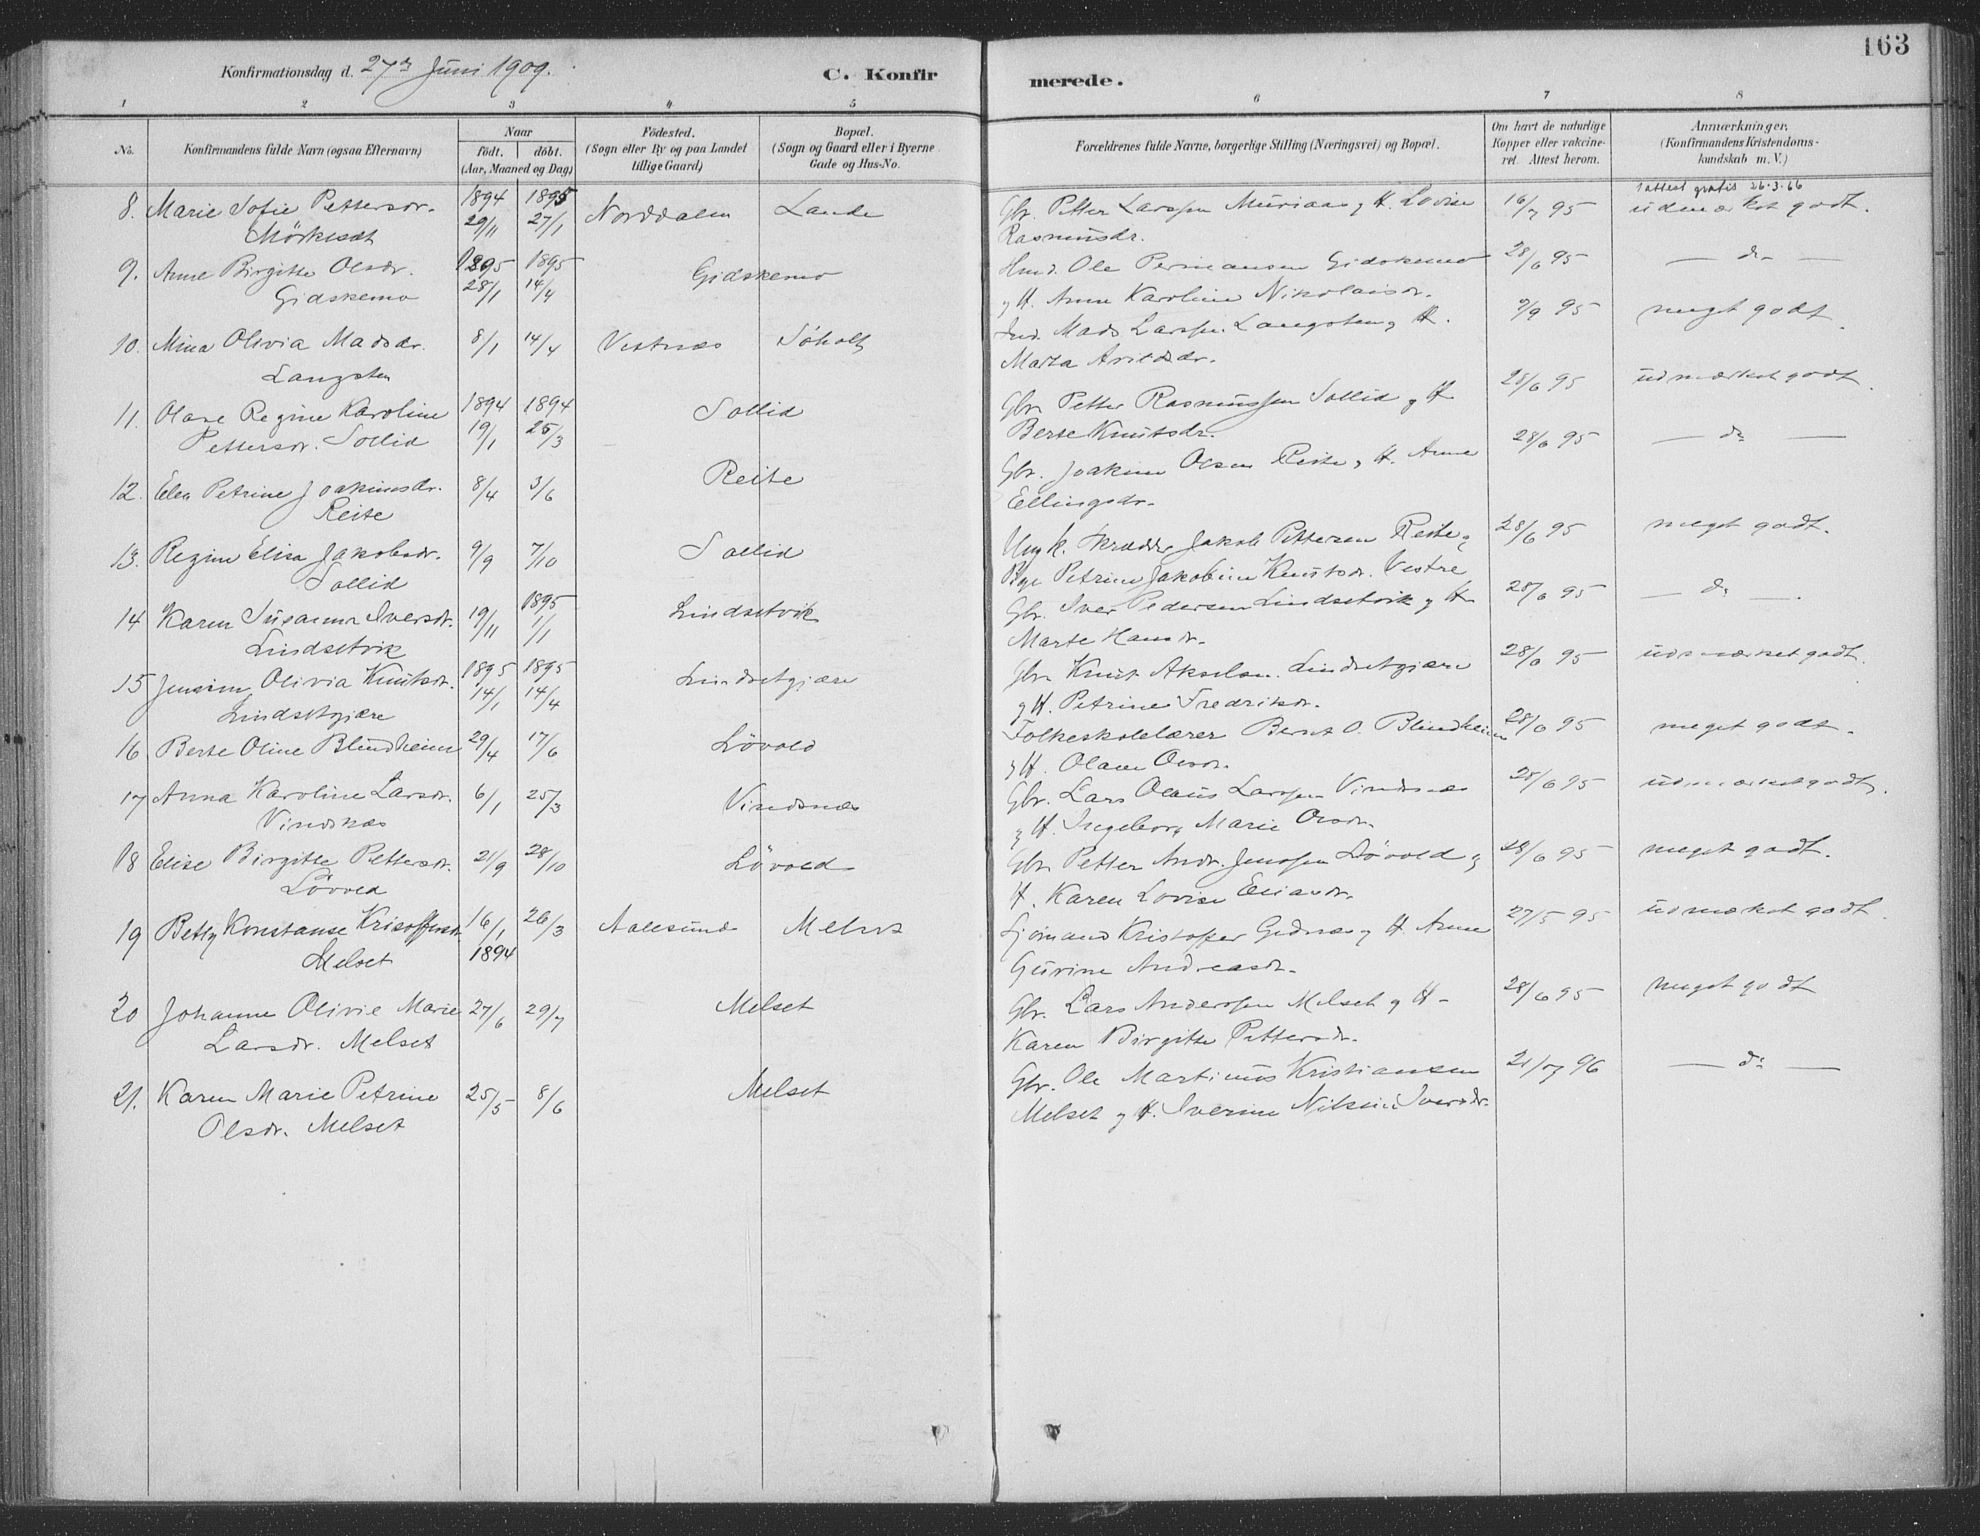 163
Konfirmationsdag d. 27de Juni 1909.
C. Konfirmerede.
1 2 3 4 5 6 7 8
No.
Konfirmandens fulde Navn (ogsaa Efternavn)
Naar
födt. döbt.
(Aar, Maaned og Dag)
Födested.
(Sogn eller By og paa Landet
tillige Gaard)
Bopæl.
(Sogn og Gaard eller i Byerne
Gade og Hus-No.
Forældrenes fulde Navne, borgerlige Stilling (Næringsvei) og Bopæl.
Om havt de naturlige
Kopper eller vakcine-
ret. Attest herom.
Anmærkninger.
(Konfirmandens Kristendoms-
kundskab m. V.)
1 attest gratis 26.3.66
8. Marie Sofie Pettersdr. 1894 29/11 1895 27/1 Norddalen Lande Gbr. Petter Larssen Muriaas og H. Lovise 16/7 95 udmærket godt.
Mörkeset Rasmusdr.
9. Anne Birgitte Olsdr. 1895 28/1 1895 14/4 Gidskemo Ole Permansen Gidskemo 28/6 95 — do —
Gidskemo og H. Anne Karoline Nikolaisdr.
10. Mina Olivia Madsdr. 8/1 14/4 Vestnæs Söholt Mads Larssen Langsten og H. 9/9 95 meget godt.
Langsten Marta
11. Olave Regine Karoline 1894 19/1 1894 25/3 Sollid Gbr. Petter Rasmussen Sollid og H. 28/6 95 udmærket godt.
Pettersdr. Sollid Berte Knutsdr.
12. Elen Petrine Joakimsdr. 8/4 3/6 Reite Gbr. Joakim Olsen Reite og H. Anne 28/6 95 — do —
Reite Ellingsdr.
13. Regine Elisa Jakobsdr. 9/9 7/10 Sollid Ungk. Skrædder Jakob Pettersen Reite og 28/6 95 meget godt.
Sollid Pige Petrine Jakobine Knutsdr. Vestre
14 Karen Susanna Iversdr. 19/11 1895 1/1 Lindsetvik Gbr. Iver Pedersen Lindsetvik og H. 28/6 95 — do —.
Lindsetvik Marte Hansdr.
15 Jensine Olivia Knutsdr. 1895 14/1 1895 14/4 Lindsetgjære Gbr. Knut Akselsen Lindsetgjære 28/6 95 udmærket godt.
Lindsetgjære og H. Petrine Fredriksdr.
16 Berte Oline Blindheim 29/4 17/6 Lövold Folkeskolelærer Bernt O. Blindheim 28/6 95 meget godt.
og H. Olave Olsdr.
17 Anna Karoline Larsdr. 6/1 25/3 Vindsnæs Gbr. Lars Olaus Larssen Vindsnæs 28/6 95 udmærket godt.
Vindsnæs og H. Ingeborg Marie Olsdr.
18 Elise Birgitte Pettersdr. 21/9 28/10 Lövold Gbr. Petter Andr. Jenssen Lövold og 28/6 95 meget godt.
Lövold H. Karen Lovise Eliasdr.
19 Betty Konstanse Kristoffersdr. 16/1 26/3 Aalesund Melset Sjömand Kristoffer Gidnæs og H. Anne 27/5 95 udmærket godt.
Melset 1894 Gurine Andreasdr.
20 Johanne Olivie Marie 27/6 29/7 Melset Gbr. Lars Anderssen Melset og H. 28/6 95 meget godt
Larsdr. Melset Karen Birgitte Pettersdr.
21. Karen Marie Petrine 25/5 8/6 Melset Gbr. Ole Martinus Kristiansen 21/7 96 — do —
Olsdr. Melset Melset og H. Iverine Nilsine Iversdr.